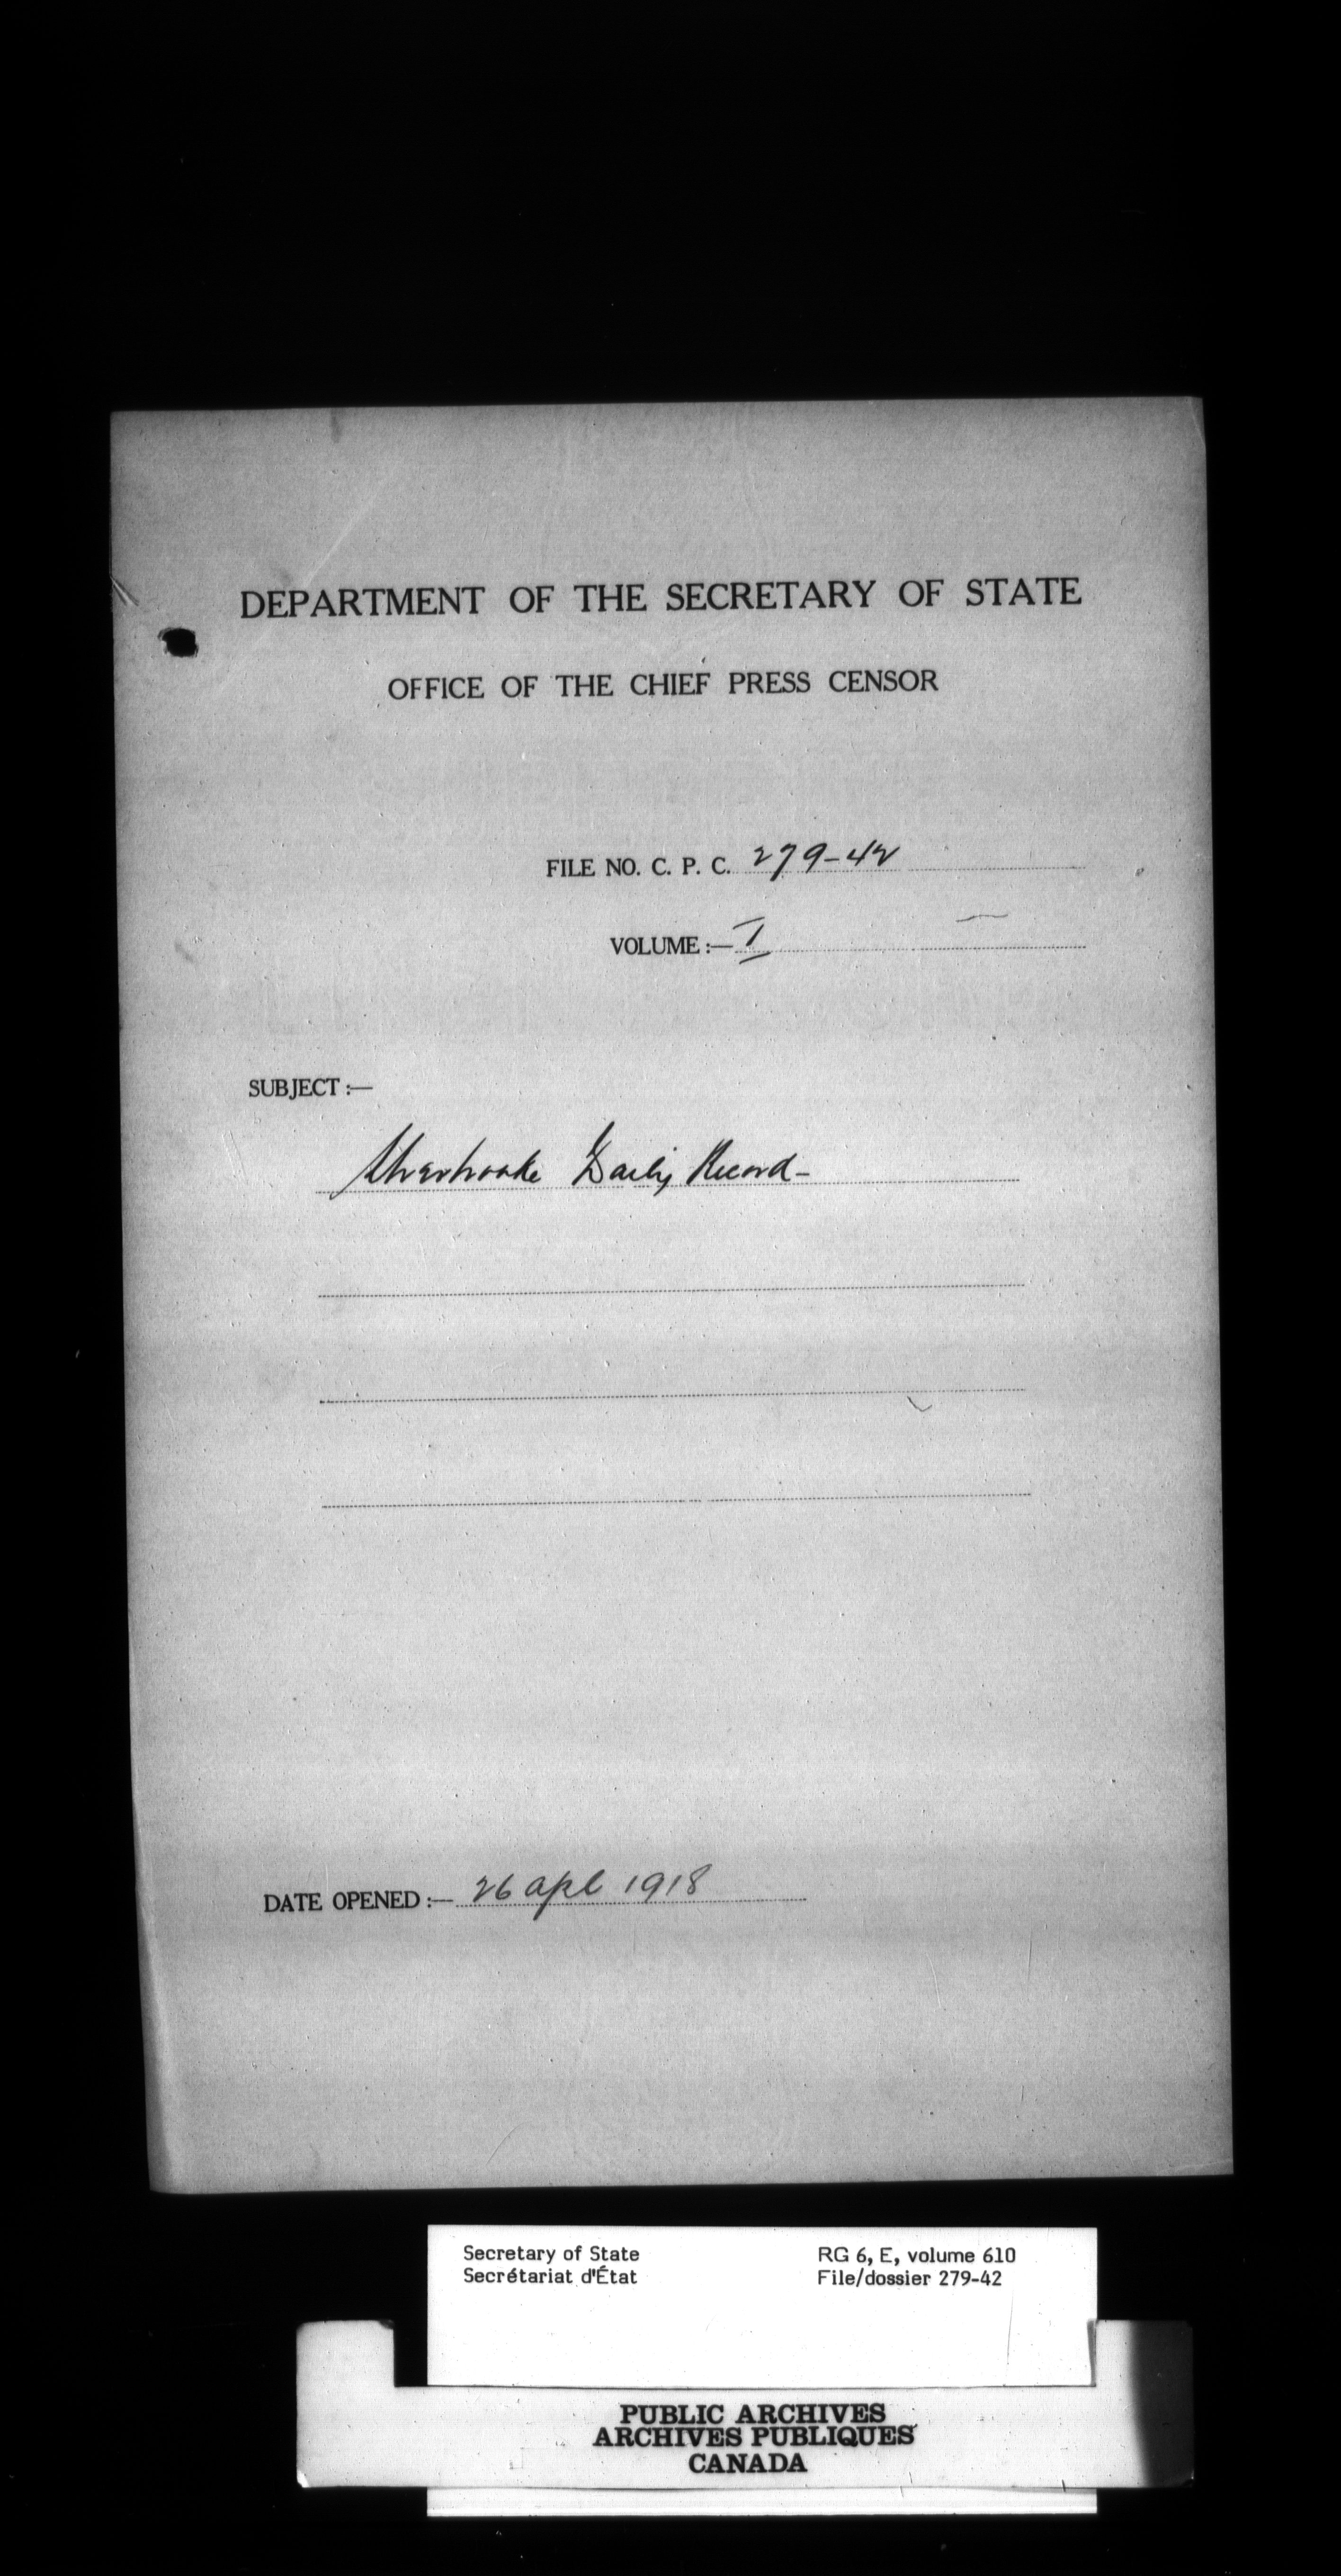 DEPARTMENT OF THE SECRETARY OF STATE
OFFICE OF THE CHIEF PRESS CENSOR
FILE NO. C. P. C. 279-42
VOLUME :— I
SUBJECT :—
Sherbrooke Daily Record-
DATE OPENED :— 26 Apl 1918
Secretary of State
Secrétariat d'État
RG 6, E, volume 610
File/dossier 279-42
PUBLIC ARCHIVES
ARCHIVES PUBLIQUES
CANADA